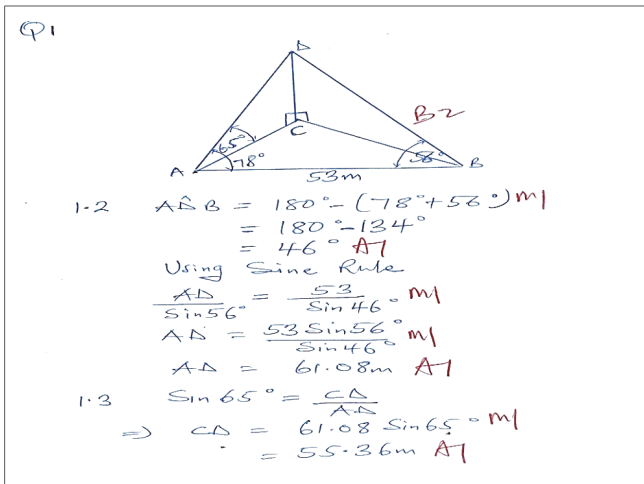 Q1
D
B2
C
65°
A 78° 58° B
53m
1.2 AD̂B = 180° - (78° + 56°) M1
= 180° - 134°
= 46° A1
Using Sine Rule
AD/Sin56° = 53/Sin46° M1
AD = 53 Sin56°/Sin46° M1
AD = 61.08m A1
1.3 Sin 65° = CD/AD
⇒ CD = 61.08 Sin65° M1
= 55.36m A1